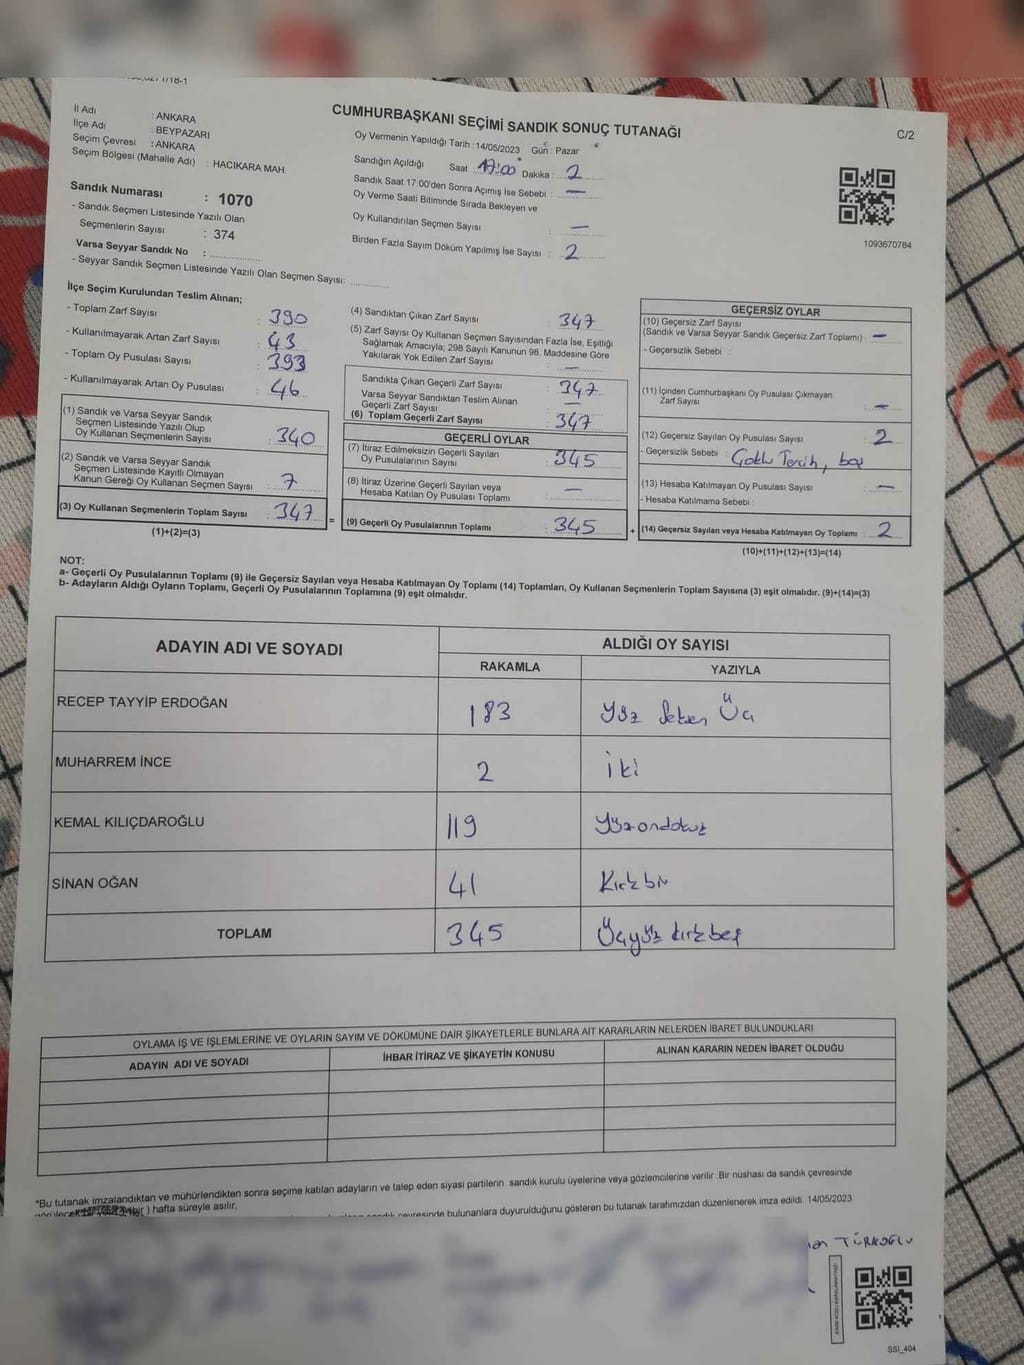 CUMHURBAŞKANI SEÇİMİ SANDIK SONUÇ TUTANAĞI
C/2
İl Adı : ANKARA
İlçe Adı : BEYPAZARI
Seçim Çevresi : ANKARA
Seçim Bölgesi (Mahalle Adı) : HACIKARA MAH.
Sandık Numarası : 1070
- Sandık Seçmen Listesinde Yazılı Olan
Seçmenlerin Sayısı : 374
Varsa Seyyar Sandık No :
- Seyyar Sandık Seçmen Listesinde Yazılı Olan Seçmen Sayısı:
Oy Vermenin Yapıldığı Tarih : 14/05/2023 Gün : Pazar
Sandığın Açıldığı Saat 17:00 Dakika : 2
Sandık Saat 17:00'den Sonra Açımış İse Sebebi : —
Oy Verme Saati Bitiminde Sırada Bekleyen ve
Oy Kullandırılan Seçmen Sayısı : —
Birden Fazla Sayım Döküm Yapılmış İse Sayısı : 2
1093670784
İlçe Seçim Kurulundan Teslim Alınan;
- Toplam Zarf Sayısı : 390
- Kullanılmayarak Artan Zarf Sayısı : 43
- Toplam Oy Pusulası Sayısı : 393
- Kullanılmayarak Artan Oy Pusulası : 46
(1) Sandık ve Varsa Seyyar Sandık
Seçmen Listesinde Yazılı Olup
Oy Kullanan Seçmenlerin Sayısı : 340
(2) Sandık ve Varsa Seyyar Sandık
Seçmen Listesinde Kayıtlı Olmayan
Kanun Gereği Oy Kullanan Seçmen Sayısı : 7
(3) Oy Kullanan Seçmenlerin Toplam Sayısı : 347
(1)+(2)=(3)
=
(4) Sandıktan Çıkan Zarf Sayısı : 347
(5) Zarf Sayısı Oy Kullanan Seçmen Sayısından Fazla İse, Eşitliği
Sağlamak Amacıyla; 298 Sayılı Kanunun 98. Maddesine Göre
Yakılarak Yok Edilen Zarf Sayısı : —
Sandıkta Çıkan Geçerli Zarf Sayısı : 347
Varsa Seyyar Sandıktan Teslim Alınan
Geçerli Zarf Sayısı : —
(6) Toplam Geçerli Zarf Sayısı : 347
GEÇERLİ OYLAR
(7) İtiraz Edilmeksizin Geçerli Sayılan
Oy Pusulalarının Sayısı : 345
(8) İtiraz Üzerine Geçerli Sayılan veya
Hesaba Katılan Oy Pusulası Toplamı : —
(9) Geçerli Oy Pusulalarının Toplamı : 345
+
GEÇERSİZ OYLAR
(10) Geçersiz Zarf Sayısı
(Sandık ve Varsa Seyyar Sandık Geçersiz Zarf Toplamı) : —
- Geçersizlik Sebebi :
(11) İçinden Cumhurbaşkanı Oy Pusulası Çıkmayan
Zarf Sayısı : —
(12) Geçersiz Sayılan Oy Pusulası Sayısı : 2
- Geçersizlik Sebebi : Çoklu Tercih, boş
(13) Hesaba Katılmayan Oy Pusulası Sayısı : —
- Hesaba Katılmama Sebebi :
(14) Geçersiz Sayılan veya Hesaba Katılmayan Oy Toplamı : 2
(10)+(11)+(12)+(13)=(14)
NOT:
a- Geçerli Oy Pusulalarının Toplamı (9) ile Geçersiz Sayılan veya Hesaba Katılmayan Oy Toplamı (14) Toplamları, Oy Kullanan Seçmenlerin Toplam Sayısına (3) eşit olmalıdır. (9)+(14)=(3)
b- Adayların Aldığı Oyların Toplamı, Geçerli Oy Pusulalarının Toplamına (9) eşit olmalıdır.
ADAYIN ADI VE SOYADI
ALDIĞI OY SAYISI
RAKAMLA YAZIYLA
RECEP TAYYİP ERDOĞAN 183 Yüz Seksen Üç
MUHARREM İNCE 2 iki
KEMAL KILIÇDAROĞLU 119 Yüzondokuz
SİNAN OĞAN 41 Kırkbir
TOPLAM 345 Üçyüz kırkbeş
OYLAMA İŞ VE İŞLEMLERİNE VE OYLARIN SAYIM VE DÖKÜMÜNE DAİR ŞİKAYETLERLE BUNLARA AİT KARARLARIN NELERDEN İBARET BULUNDUKLARI
ADAYIN ADI VE SOYADI İHBAR İTİRAZ VE ŞİKAYETİN KONUSU ALINAN KARARIN NEDEN İBARET OLDUĞU
*Bu tutanak imzalandıktan ve mühürlendikten sonra seçime katılan adayların ve talep eden siyasi partilerin sandık kurulu üyelerine veya gözlemcilerine verilir. Bir nüshası da sandık çevresinde
) hafta süreyle asılır.
çevresinde bulunanlara duyurulduğunu gösteren bu tutanak tarafımızdan düzenlenerek imza edildi. 14/05/2023
TÜRKOĞLU
SSI_404